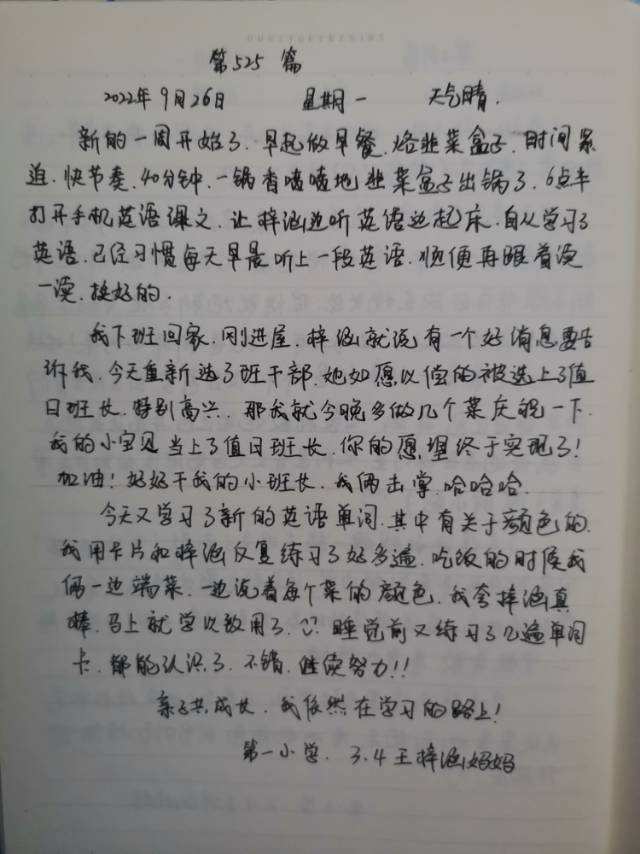 第525篇
2022年9月26日 星期一 天气晴.
新的一周开始了.早起做早餐.烙韭菜盒子.时间紧
迫.快节奏.40分钟.一锅香喷喷地韭菜盒子出锅了.6点半
打开手机英语课文.让梓涵边听英语边起床.自从学习了
英语.已经习惯每天早晨听上一段英语.顺便再跟着读
一读.挺好的.
我下班回家.刚进屋.梓涵就说有一个好消息要告
诉我.今天重新选了班干部.她如愿以偿的被选上了值
日班长.特别高兴.那我就今晚多做几个菜庆祝一下.
我的小宝贝当上了值日班长.你的愿望终于实现了!
加油!好好干我的小班长.我俩击掌.哈哈哈.
今天又学习了新的英语单词.其中有关于颜色的.
我用卡片和梓涵反复练习了好多遍.吃饭的时候我
俩一边端菜.一边说着每个菜的颜色.我夸梓涵真
棒.马上就学以致用了.睡觉前又练习了几遍单词
卡.都能认识了.不错.继续努力!!
亲子共成长.我依然在学习的路上!
第一小学.3.4王梓涵妈妈